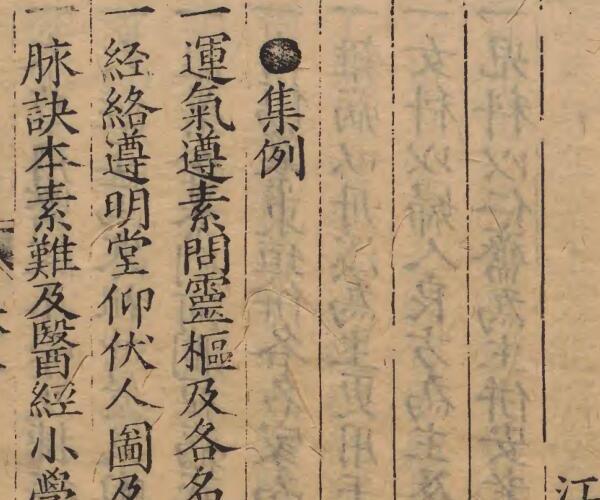 江
●集例
一運氣遵素問靈樞及各名
一經絡遵明堂仰伏人圖及
一脉訣本素難及醫經小學